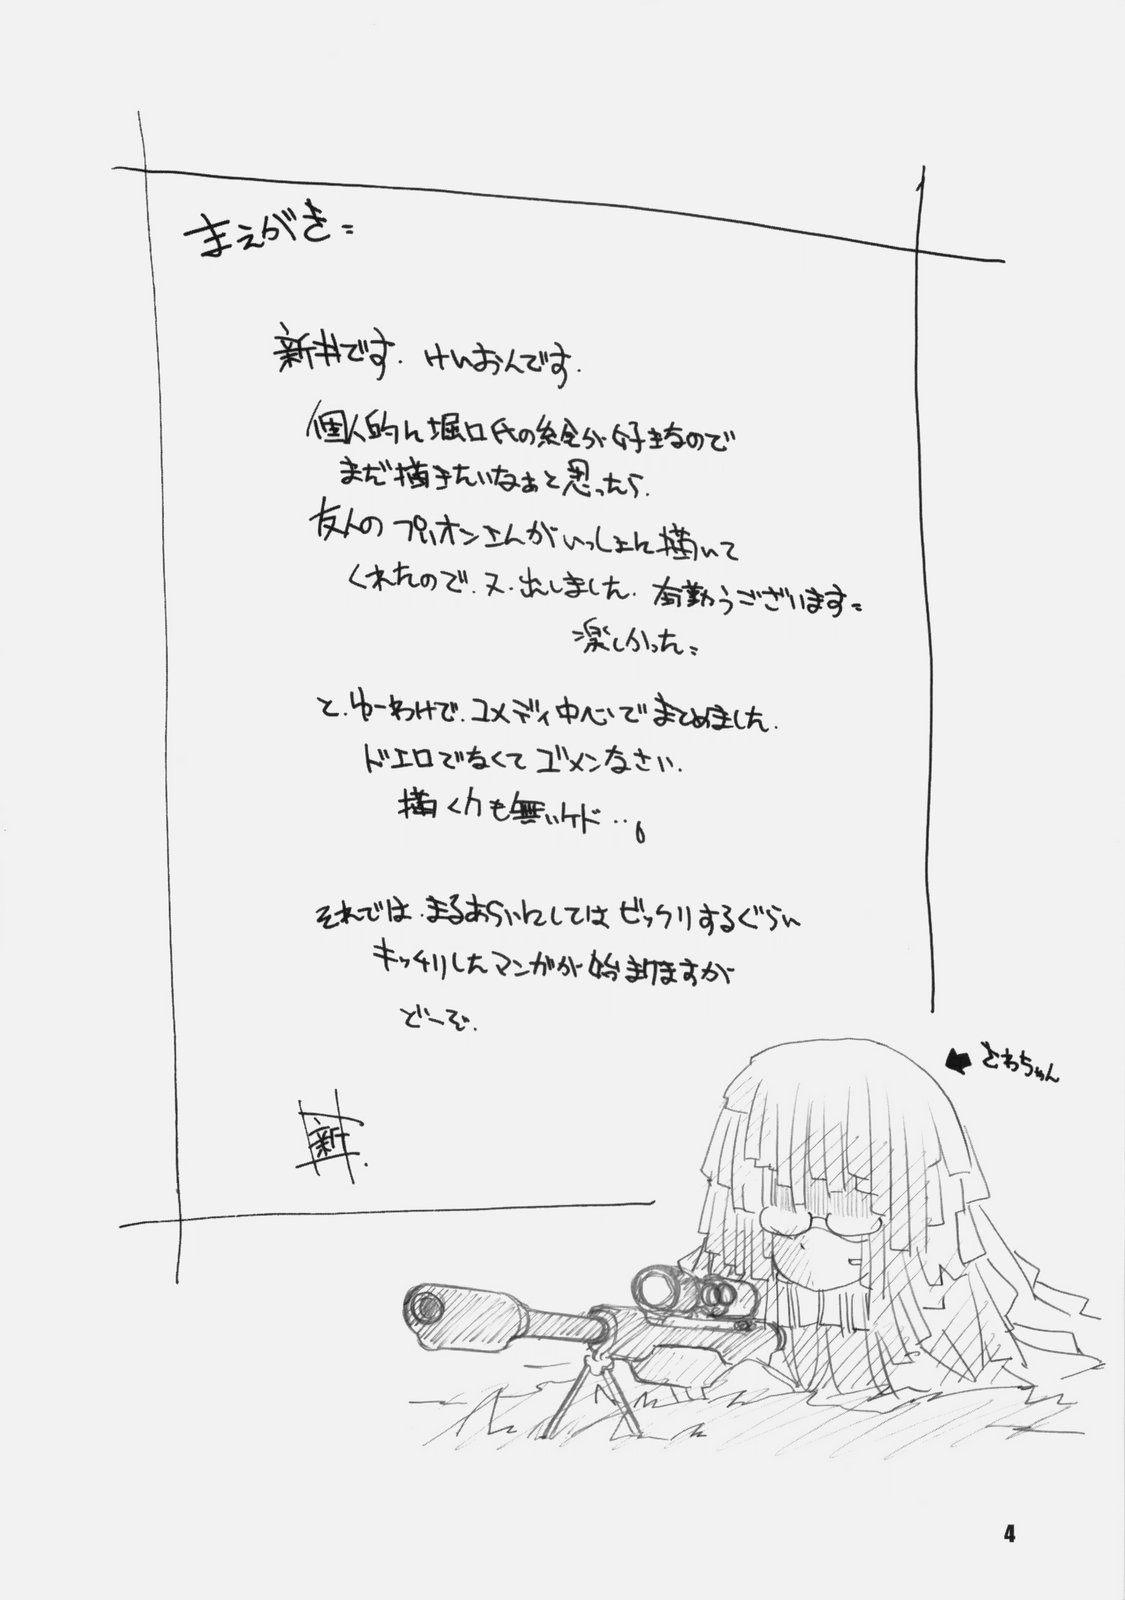 まえがき=
新井です. けいおんです.
個人的に堀口氏の絵が好きなので
まだ描きたいなぁと思ったら.
友人の プリオンさんがいっしょに描いて
くれたので. 又. 出しました. 有難うございます=
楽しかった=
と.ゆーわけで. コメディ中心でまとめました.
ドエロでなくて ゴメンなさい.
描く力も無いケド・・。
それでは. まるあらいにしては ビックリするぐらい
キッチリしたマンガが始まりますが
どーぞ.
新.
とわちゃん
4